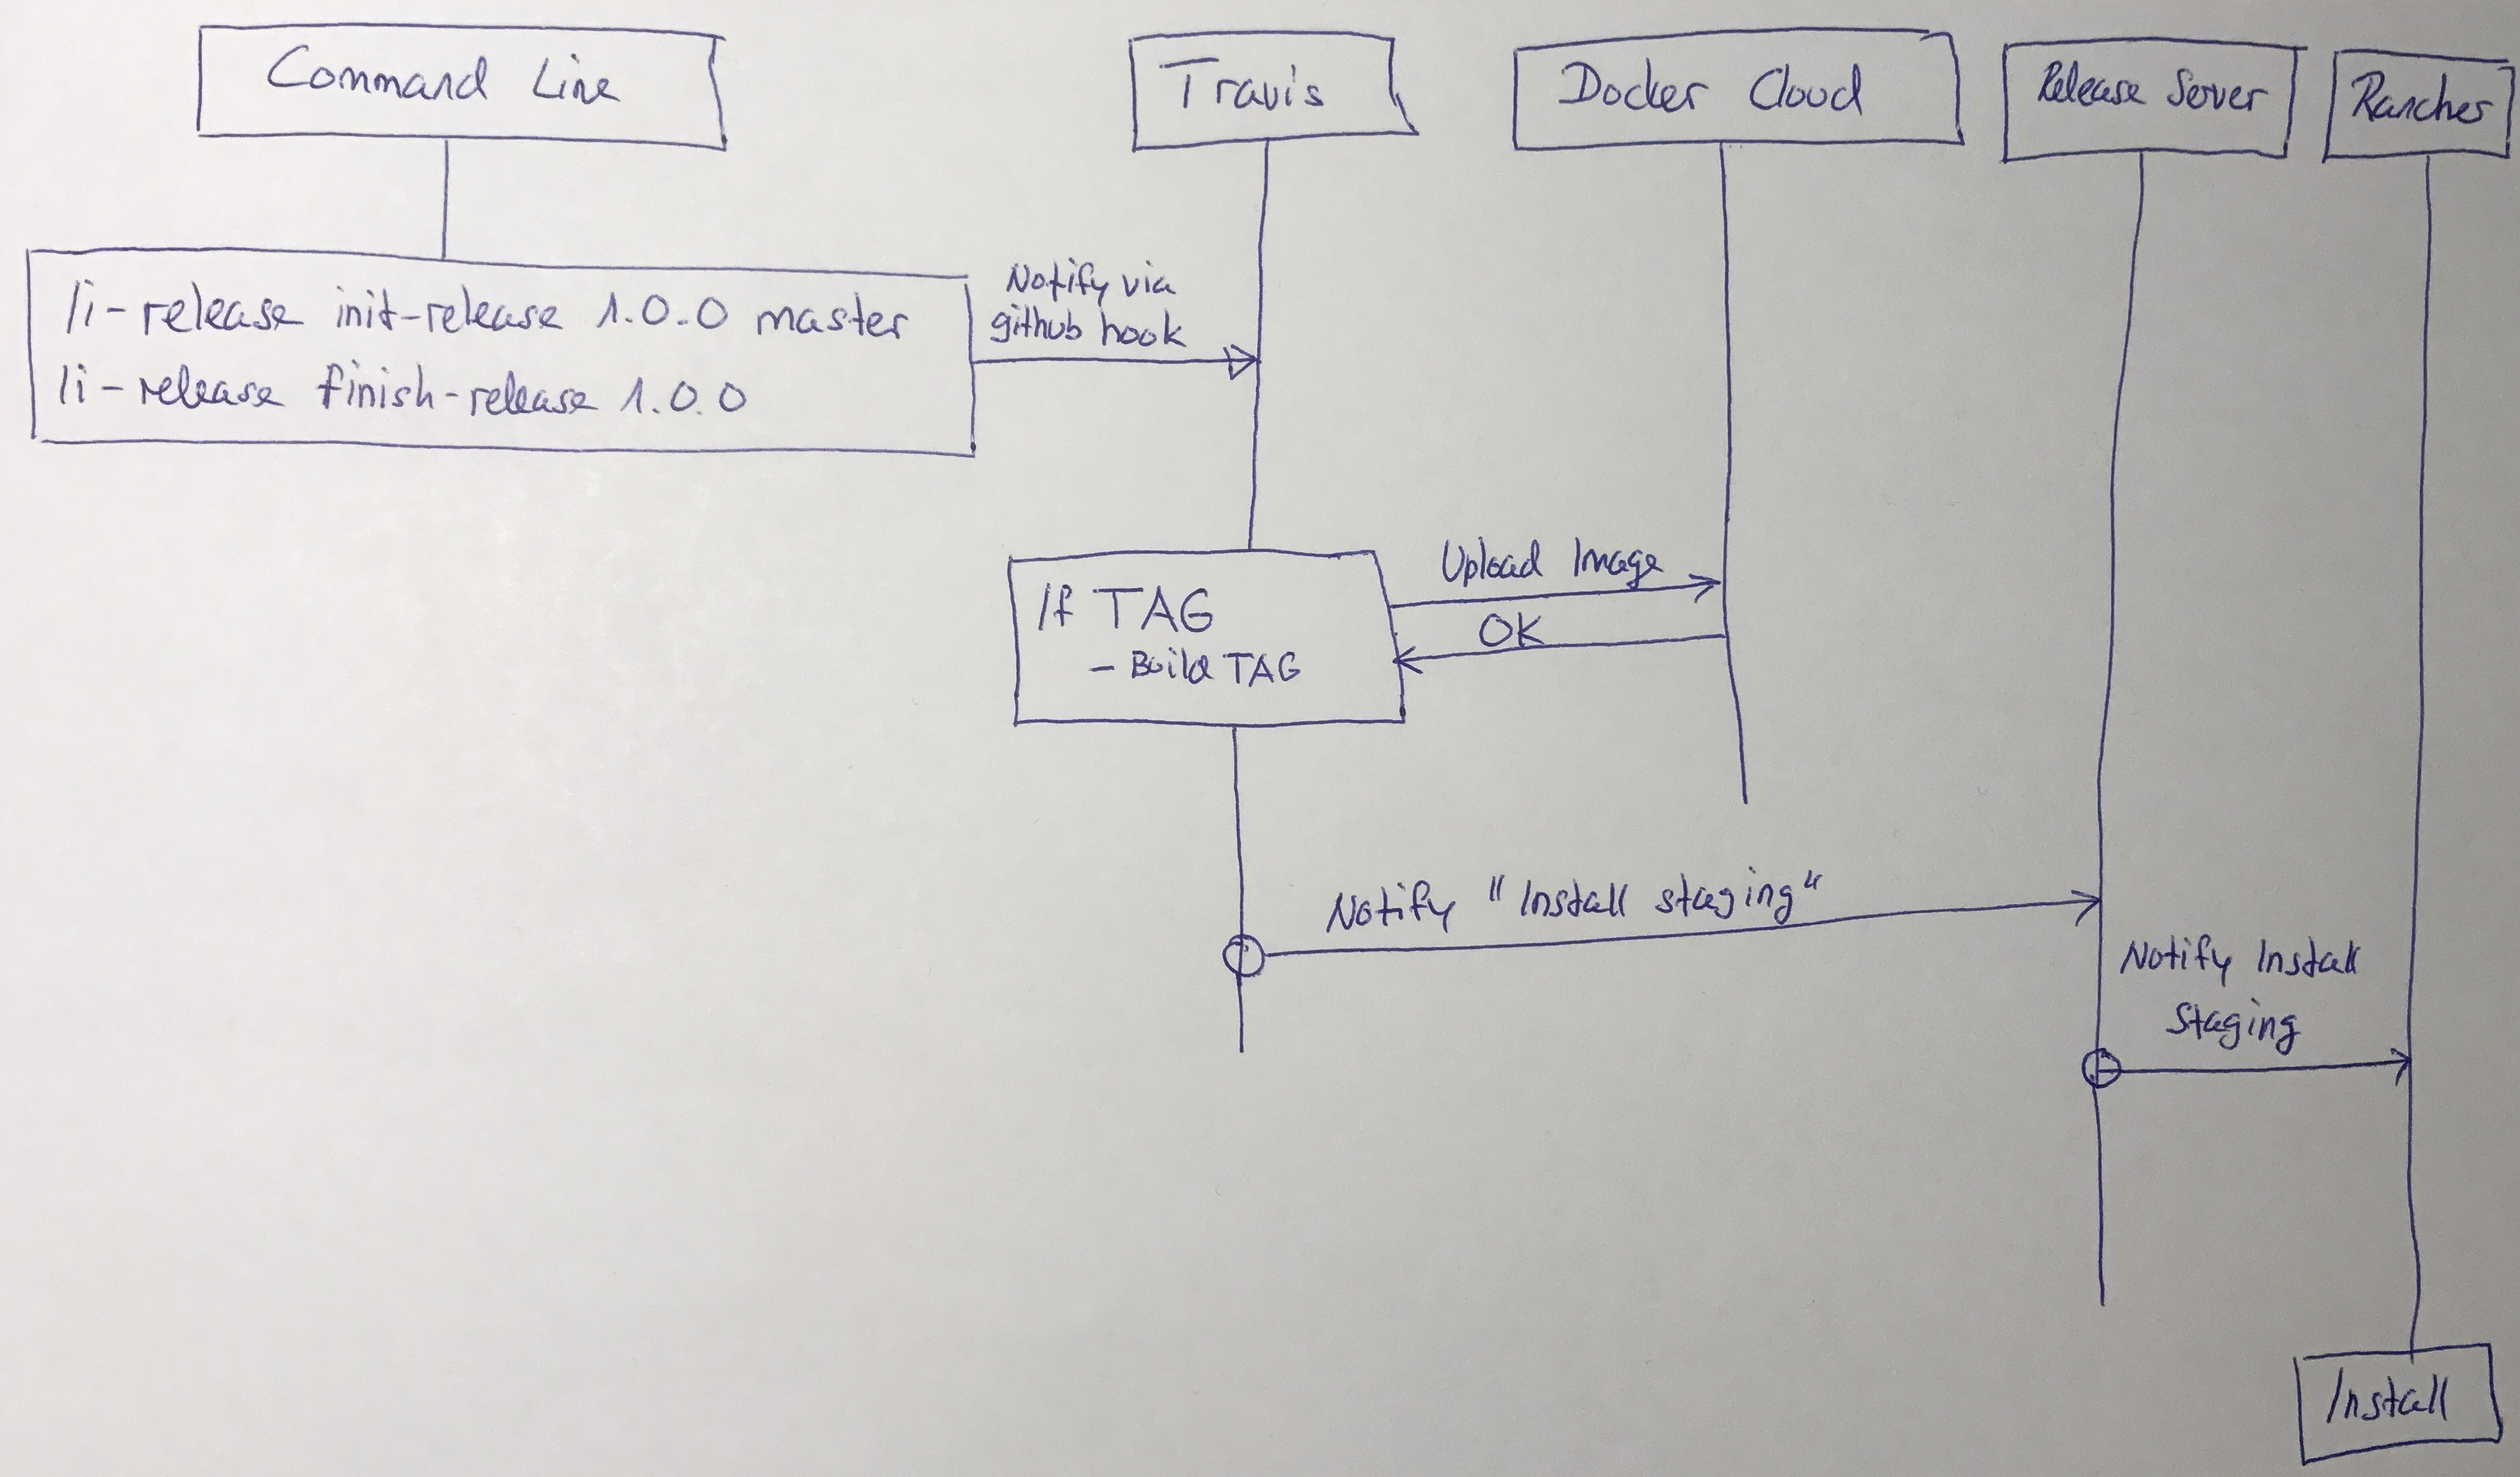 Command Line
Travis
Docker Cloud
Release Server
Rancher
li-release init-release 1.0.0 master
li-release finish-release 1.0.0
Notify via
github hook
If TAG
- Build TAG
Upload Image
OK
Notify "Install staging"
Notify Install
Staging
Install